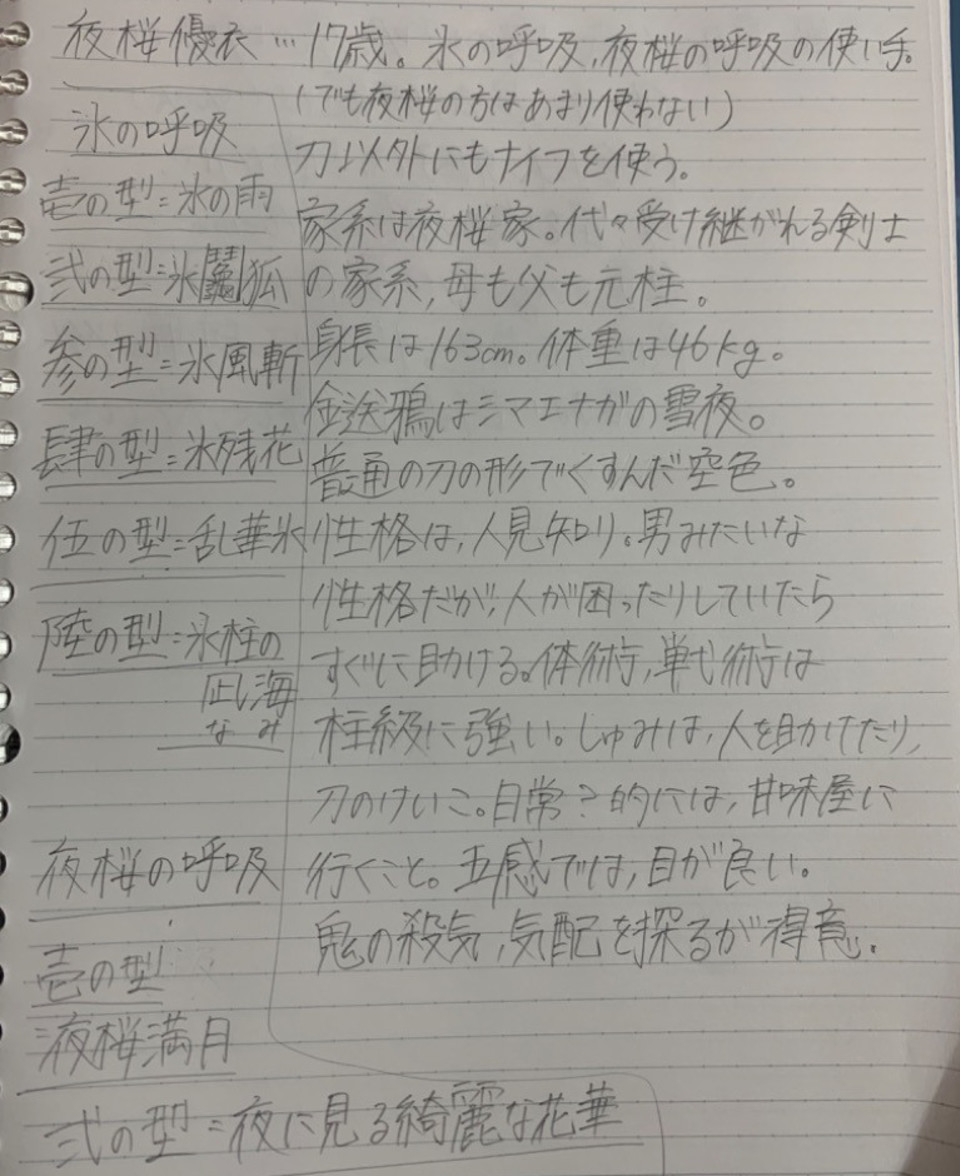 夜桜優衣…17歳。氷の呼吸,夜桜の呼吸の使い手。
(でも夜桜の方はあまり使わない)
刀以外にもナイフを使う。
家系は夜桜家。代々受け継がれる剣士
の家系,母も父も元柱。
身長は163cm。体重は46kg。
全送鴉はシマエナガの雪夜。
普通の刀の形でくすんだ空色。
性格は,人見知り。男みたいな
性格だが,人が困ったりしていたら
すぐに助ける。体術,
柱級に強い。しゅみは,人を助けたり,
刀のけいこ。日常?的には,甘味屋に
行くこと。五感では,目が良い。
鬼の殺気,気配を探るが得意.
氷の呼吸
壱の型=氷の雨
弐の型=氷 狐
参の型=氷風斬
肆の型=氷残花
伍の型=乱華氷
陸の型=氷柱の
凪海
なみ
夜桜の呼吸
壱の型
=夜桜満月
弐の型=夜に見る綺麗な花華